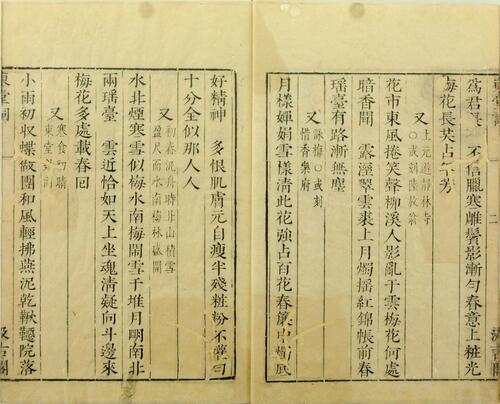 東堂詞
爲君 不信臘寒雕鬢影漸勻春意上粧光
梅花長共占年芳
又 上元遊靜林寺
○或刻陸放翁
花市東風捲笑聲柳溪人影亂于雲梅花何處
暗香聞 露溼翠雲裘上月燭搖紅錦帳前春
瑶臺有路漸無塵
又 詠梅○或刻
惜香樂府
月樣嬋娟雪樣清此花強占百花春簾中底
二
汲古閣
好精神 多恨肌膚元自瘦半殘粧粉不勻
十分全似那人人
又 初春汎舟時北山積雪
盈尺而水南梅林盛開
水北煙寒雪似梅水南梅閙雪千堆月明南北
兩瑶臺 雲近恰如天上坐魂清疑向斗邊來
梅花多處載春回
又 寒食初晴
東堂對酒
小雨初收蝶做團和風輕拂燕泥乾鞦韆院落
東堂詞
汲古閣